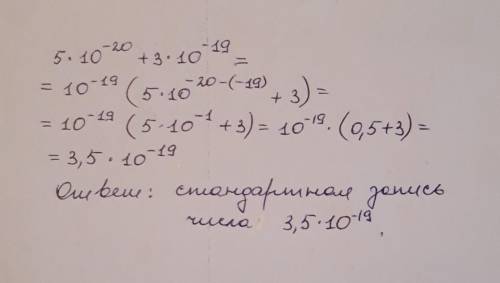 5·10⁻²⁰ + 3·10⁻¹⁹ =
= 10⁻¹⁹ (5·10⁻²⁰⁻⁽⁻¹⁹⁾ + 3) =
= 10⁻¹⁹ (5·10⁻¹ + 3) = 10⁻¹⁹·(0,5+3) =
= 3,5·10⁻¹⁹
Ответ: стандартная запись
числа 3,5·10⁻¹⁹.